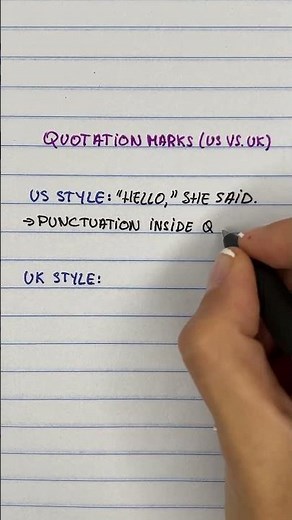 QUOTATION MARKS (US VS. UK)
US STYLE: "HELLO," SHE SAID.
→ PUNCTUATION INSIDE Q
UK STYLE: